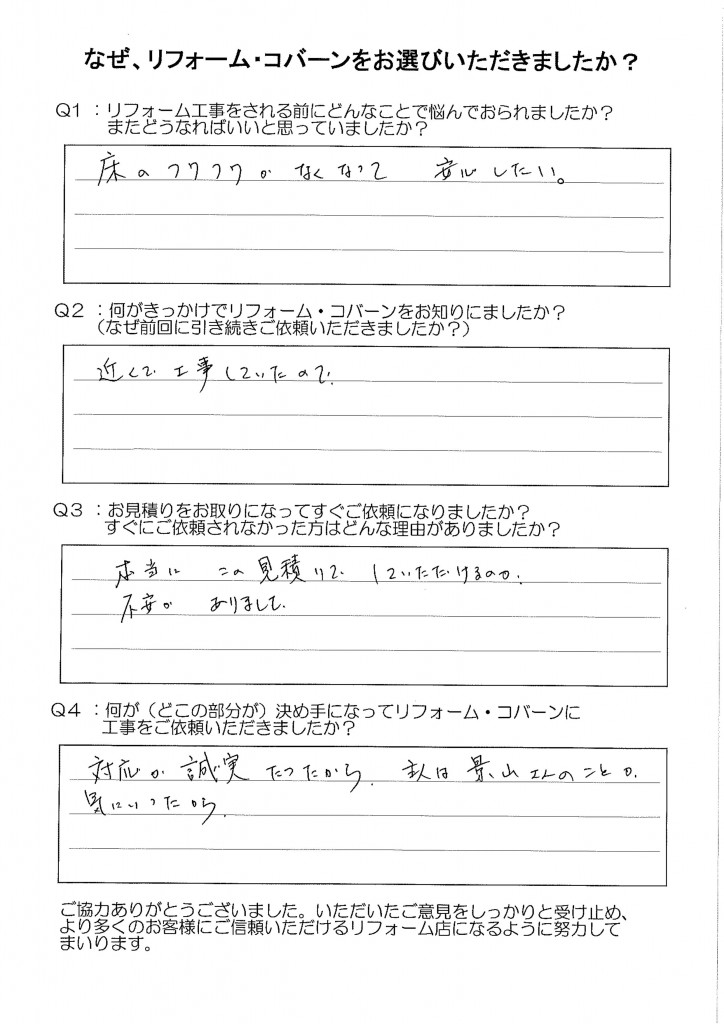 なぜ、リフォーム・コバーンをお選びいただきましたか？
Q1：リフォーム工事をされる前にどんなことで悩んでおられましたか？
またどうなればいいと思っていましたか？
床のフワフワがなくなって 安心したい。
Q2：何がきっかけでリフォーム・コバーンをお知りにましたか？
（なぜ前回に引き続きご依頼いただきましたか？）
近くで工事していたので
Q3：お見積りをお取りになってすぐご依頼になりましたか？
すぐにご依頼されなかった方はどんな理由がありましたか？
本当に この見積りで していただけるのか、
不安が ありまして、
Q4：何が（どこの部分が）決め手になってリフォーム・コバーンに
工事をご依頼いただきましたか？
対応が誠実だったから、主人は景山さんのことが
気にいったから、
ご協力ありがとうございました。いただいたご意見をしっかりと受け止め、
より多くのお客様にご信頼いただけるリフォーム店になるように努力して
まいります。